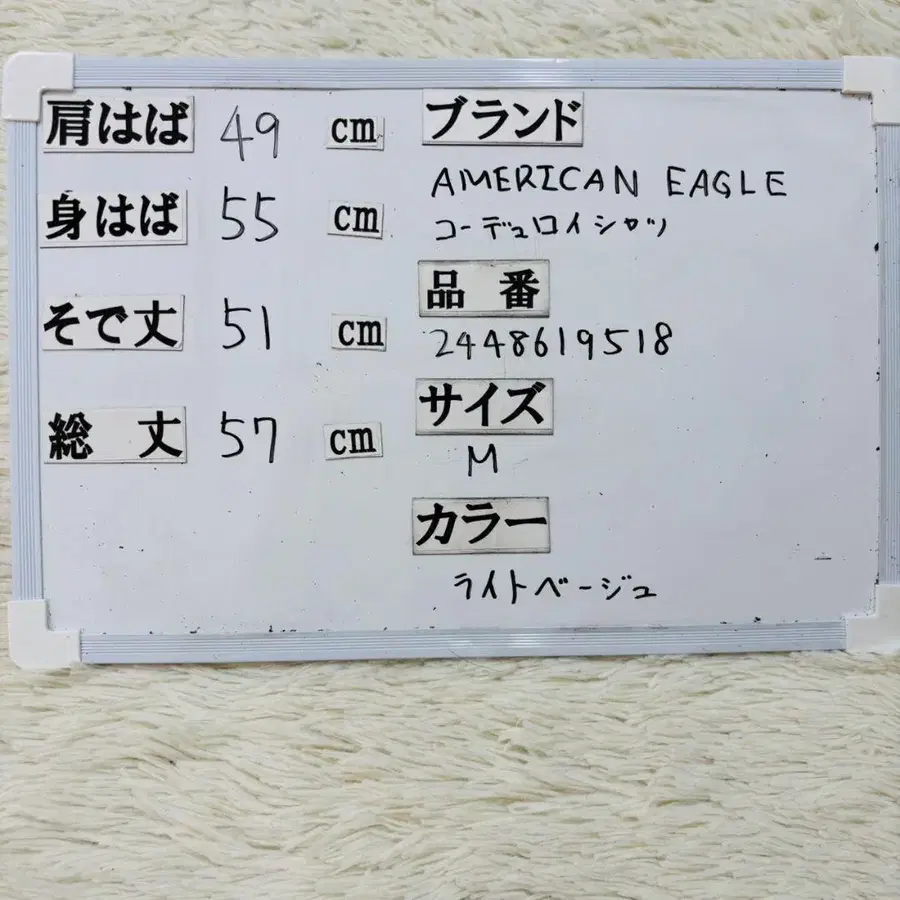 肩はば 49 cm
身はば 55 cm
そで丈 51 cm
総丈 57 cm
ブランド
AMERICAN EAGLE
コーデュロイシャツ
品番
2448619518
サイズ
M
カラー
ライトベージュ